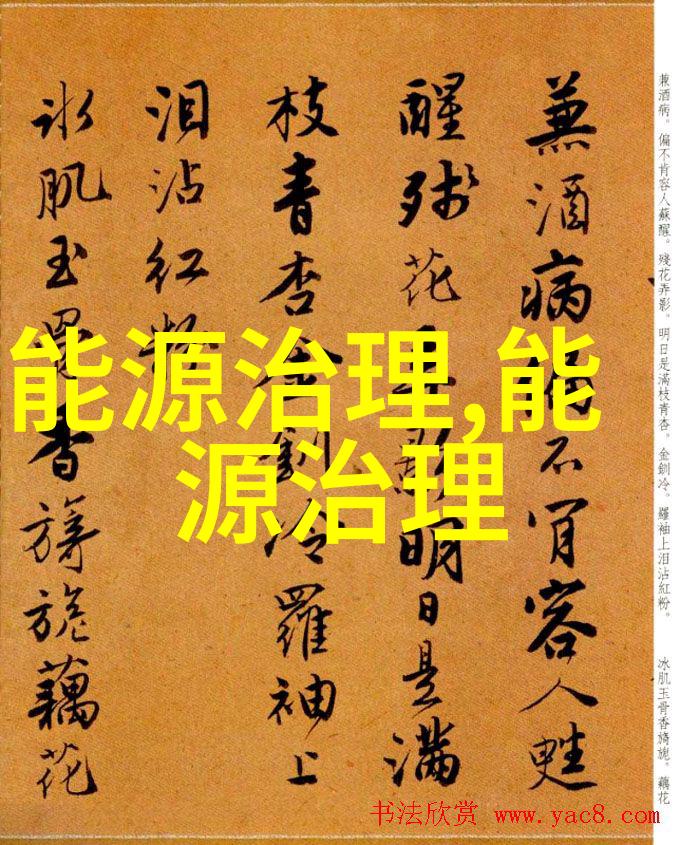 兼酒病。偏不肯容人蘇醒。殘花弄影。明日是滿枝青杏。金釧冷。羅袖上泪沾紅粉。
冰肌玉骨香旖旎。藕花
兼酒病偏不肯容人甦
醒殘花弄影明日是滿
枝青杏金釧冷羅袖上
泪沾紅粉
冰肌玉骨香旖旎藕花
能源治理,能
源治理
书法欣赏 www.yac8.com